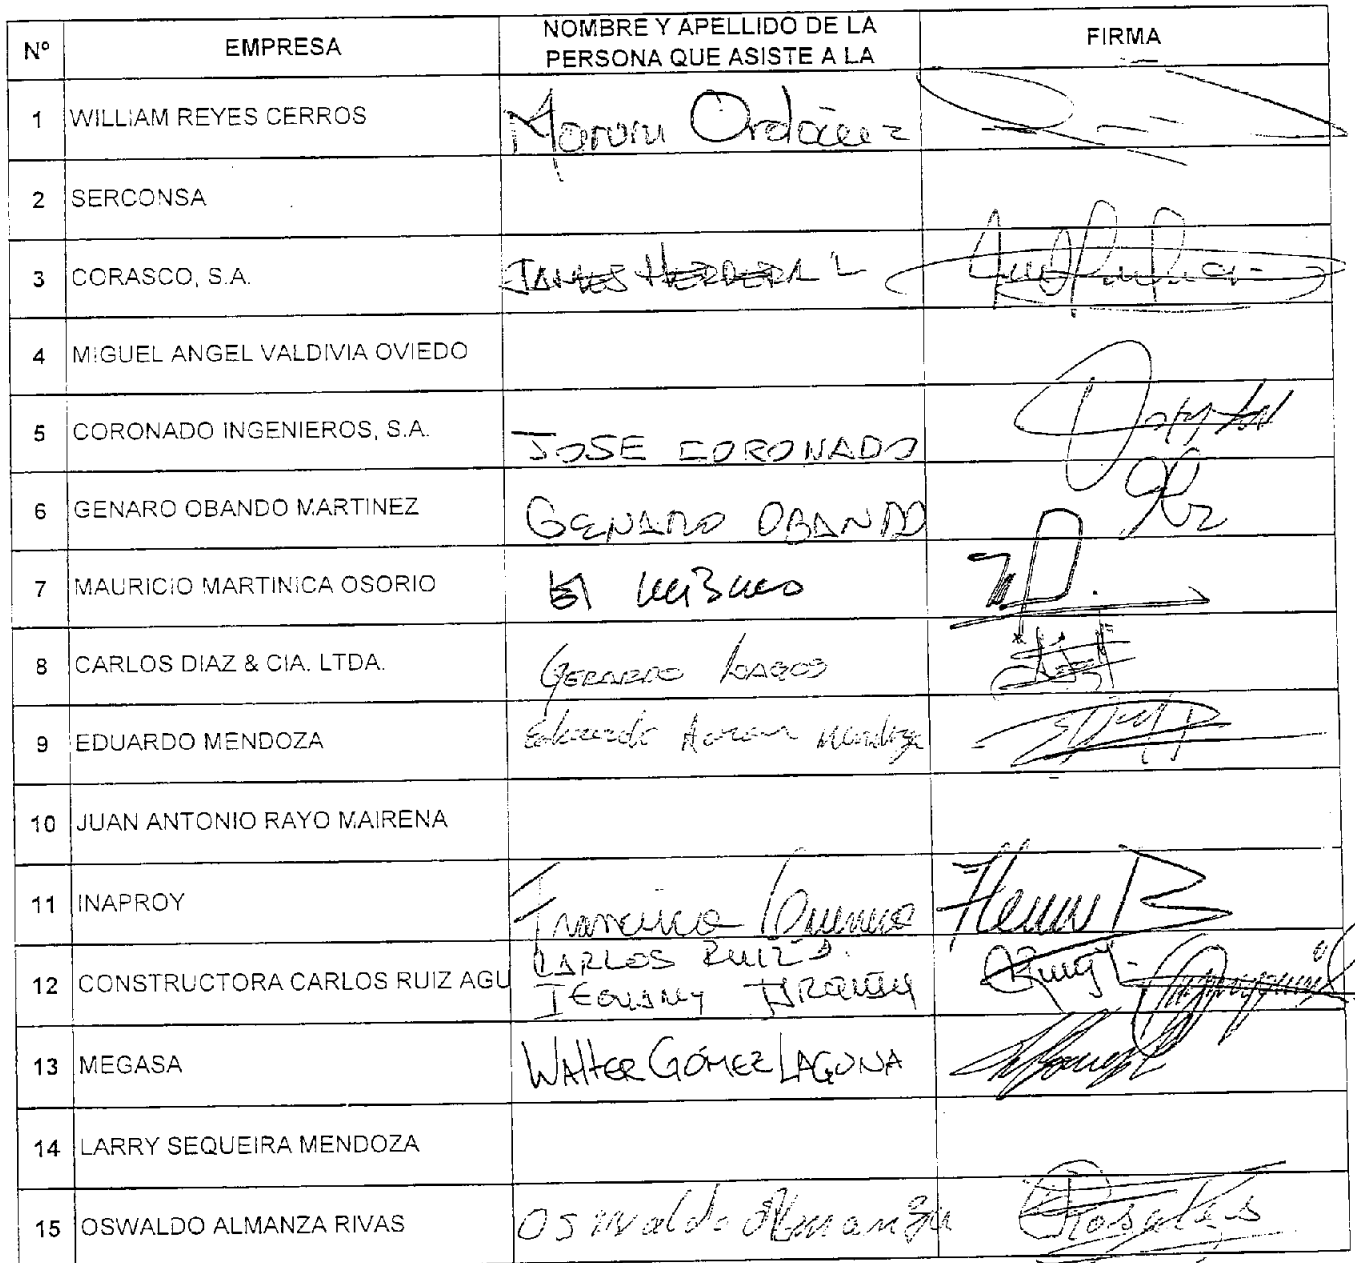 Nº EMPRESA NOMBRE Y APELLIDO DE LA PERSONA QUE ASISTE A LA FIRMA
1 WILLIAM REYES CERROS Ordóñez
2 SERCONSA
3 CORASCO, S.A. JAMES HERRERA L
4 MIGUEL ANGEL VALDIVIA OVIEDO
5 CORONADO INGENIEROS, S.A. JOSE CORONADO
6 GENARO OBANDO MARTINEZ GENARO OBANDO
7 MAURICIO MARTINICA OSORIO El mismo
8 CARLOS DIAZ & CIA. LTDA. GERARDO LAGOS
9 EDUARDO MENDOZA Eduardo Aaron Mendoza
10 JUAN ANTONIO RAYO MAIRENA
11 INAPROY Francisco
12 CONSTRUCTORA CARLOS RUIZ AGU CARLOS RUIZ
13 MEGASA WALTER GÓMEZ LAGUNA
14 LARRY SEQUEIRA MENDOZA
15 OSWALDO ALMANZA RIVAS Oswaldo Almanza